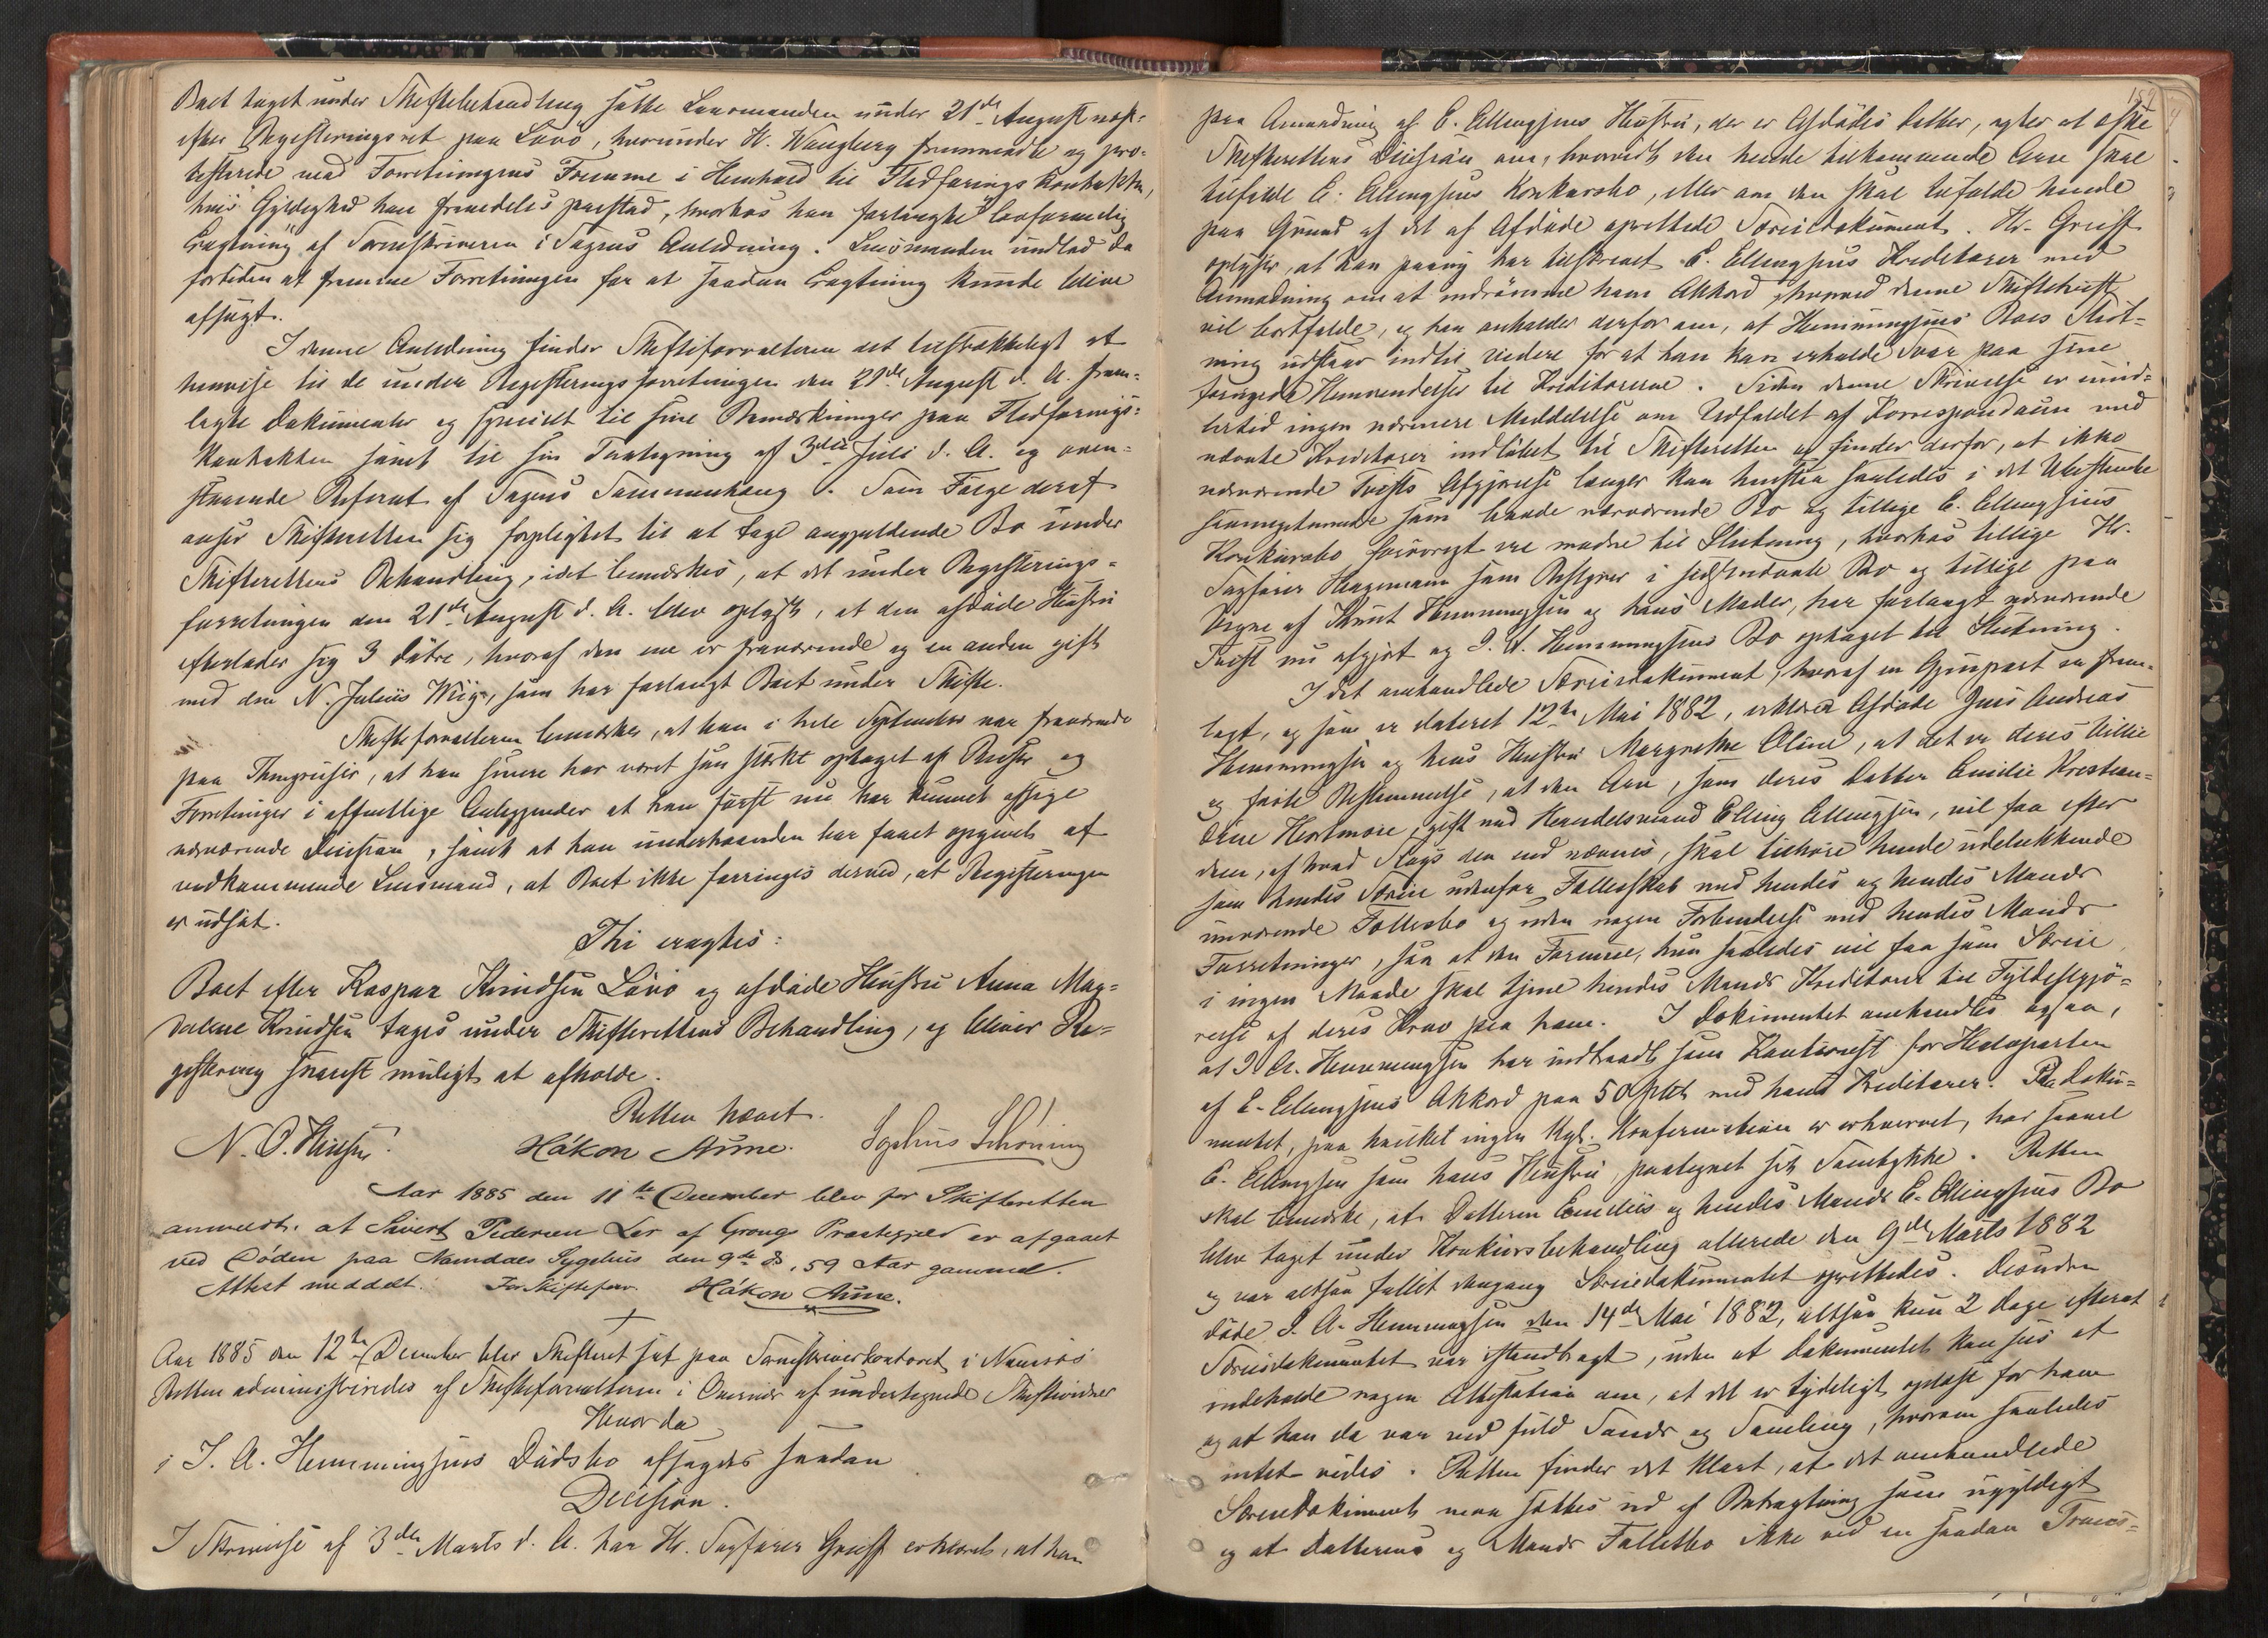 Boet taget under Skiftebehandling satte Lensmanden under 21de August næst-
efter Registreringsret paa Lövö, hvorunder K. Wangberg fremmødte og pro-
testerede mod Forretningens Fremme i Henhold til Fledføringskontrakten,
hvis Gyldighed han fremdeles paastod, hvorhos han forlangte lovformelig
Eragtning af Sorenskriveren i Sagens Anledning. Lensmanden undlod da
fortiden at fremme Forretningen for at saadan Eragtning kunde blive
afsagt.
I denne Anledning finder Skifteforvalteren det tilstrækkeligt at
henvise til de under Registeringsforretningen den 21de August d. A. frem-
lagte Dokumenter og specielt til sine Bemærkninger paa Fledførings-
kontrakten samt til sin Paategning af 3die Juli d. A. og oven-
staaende Referat af Sagens Sammenhæng. Som Følge deraf
anser Skifteretten sig forpligtet til at tage angjældende Bo under
Skifterettens Behandling, idet bemærkes, at det under Registerings-
forretningen den 21de August d. A. blev oplyst, at den afdøde Hustru
efterlader sig 3 Døtre, hvoraf den ene er fraværende og en anden gift
med den N. Julius Wiig, som har forlangt Boet under Skifte.
Skifteforvalteren bemærker, at han i hele September var fraværende
paa Thingreiser, at han senere har været saa stærkt optaget af Reiser og
Forretninger i offentlige Anliggender at han først nu har kunnet afsige
nærværende Decision, samt at han underhaanden har faaet opgivet af
vedkommende Lensmand, at Boet ikke forringes derved, at Registeringen
er udsat.
Thi eragtes:
Boet efter Kaspar Knudsen Lövö og afdøde Hustru Anna Mag-
dalene Knudsen tages under Skifterettens Behandling, og bliver Re-
gistering snarest muligt at afholde.
Retten hævet.
N. O. Håkon Aune. Sophus Schöning
Aar 1885 den 11te December blev for Skifteretten
anmeldt, at Sivert Pedersen Ler af Grongs Præstegjeld er afgaaet
ved Døden paa Namdals Sygehus den 9de ds, 59 Aar gammel.
Attest meddelt. For Skifteforv. Håkon Aune.
Aar 1885 den 12te December blev Skifteret sat paa Sorenskriverkontoret i Namsos
Retten administreredes af Skifteforvalteren i Overvær af undertegnede Skiftevidner
Hvorda
i J. A. Hemmingsens Dødsbo afsagdes saadan
Decision.
I Skrivelse af 3die Marts d. A. har Hr. Sagfører Greiff erklæret, at han
152
paa Anmodning af E. Ellingsens Hustru, der er Afdødes Datter, agter at æske
Skifterettens Decision om, hvorvidt den hende tilkommende Arv skal
tilfalde E. Ellingsens Konkursbo, eller om den skal tilfalde hende
paa Grund af det af Afdøde oprettede Særeiedokument. Hr. Greiff
oplyser, at han paany har tilskrevet E. Ellingsens Kreditorer med
Anmodning om at indrømme ham Akkord, hvorved denne Skiftetvist
vil bortfalde, og han anholder derfor om, at Hemmingsens Boes Slut-
ning udstaar indtil videre for at han kan erholde Svar paa sine
fornyede Henvendelser til Kreditorerne. Siden denne Skrivelse er imid-
lertid ingen nærmere Meddelelse om Udfaldet af Korrespondancen med
nævnte Kreditorer indløbet til Skifteretten og finder derfor, at ikke
nærværende Tvists Afgjørelse længer kan henstaa saaledes i det Ubestemte
saameget mere som baade nærværende Bo og tillige E. Ellingsens
Konkursbo forøvrigt ere modne til Slutning, hvorhos tillige Hr.
Sagfører Hagemann som Bestyrer i sidstnævnte Bo og tillige paa
Vegne af Knut Hemmingsen og hans Moder, har forlangt nærværende
Tvist nu afgjort og J. A. Hemmingsens Bo optaget til Slutning.
I det omhandlede Særeiedokument, hvoraf en Gjenpart er frem-
lagt, og som er dateret 12te Mai 1882, erklærer Afdøde Jens Andreas
Hemmingsen og hans Hustru Margrethe Oline, at det er deres Villie
og faste Bestemmelse, at den Arv, som deres Datter Emilie Kristian-
Oline Hartmore, gift med Handelsmand Elling Ellingsen, vil faa efter
dem, af hvad Slags den end nævnes, skal tilhøre hende udelukkende
som hendes Særeie udenfor Fællesskab med hendes og hendes Mands
nuværende Fællesbo og uden nogen Forbindelse med hendes Mands
Forretninger, saa at den Formue, hun saaledes vil faa som Særeie
i ingen Maade skal tjene hendes Mands Kreditorer til Fyldestgjø-
relse af deres Krav paa ham. I Dokumentet omhandles ogsaa,
at J. A. Hemmingsen har indtraadt som Kautionist for Halvparten
af E. Ellingsens Akkord paa 50 pCt med hans Kreditorer. Paa Doku-
mentet, paa hvilket ingen Kgl. Konfirmation er erhvervet, har saavel
E. Ellingsen som hans Hustru paategnet sit Samtykke. Retten
skal bemærke, at Datteren Emilies og hendes Mands E. Ellingsens Bo
blev taget under Konkursbehandling allerede den 9de Marts 1882
og var altsaa fallit dengang Særeiedokumentet oprettedes. Desuden
døde J. A. Hemmingsen den 14de Mai 1882, altsaa kun 2 Dage efterat
Særeiedokumentet var istandbragt, uden at Dokumentet kan sees at
indeholde nogen Attestation om, at det er tydeligt oplæst for ham
og at han da var ved fuld Sands og Samling, hvorom saaledes
intet vides. Retten finder det klart, at det omhandlede
Særeiedokument maa sættes ud af Betragtning som ugyldigt
og at Datterens og Mands Fallitbo ikke ved en saadan